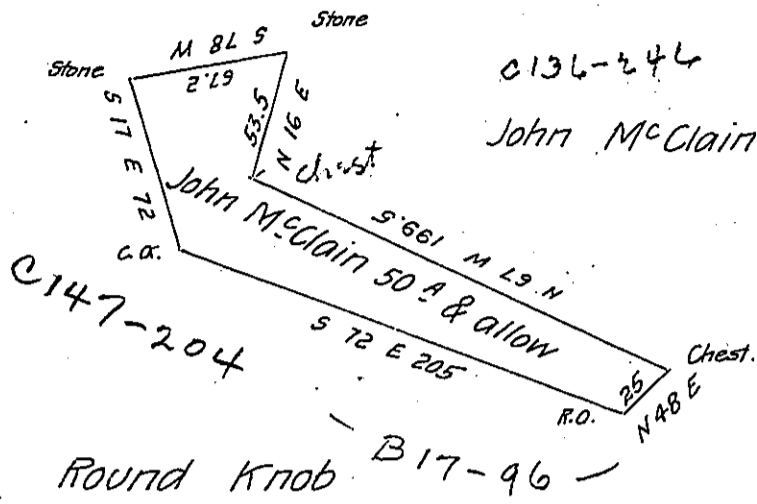 Stone
S 78 W
67.2
Stone
C136-246
John McClain
S 17 E 72
53.5
N 16 E
Chest
John McClain 50 A & allow
N 67 W 199.5
C.O.
C147-204
S 72 E 205
Chest.
25
N 48 E
R.O.
B17-96
Round Knob